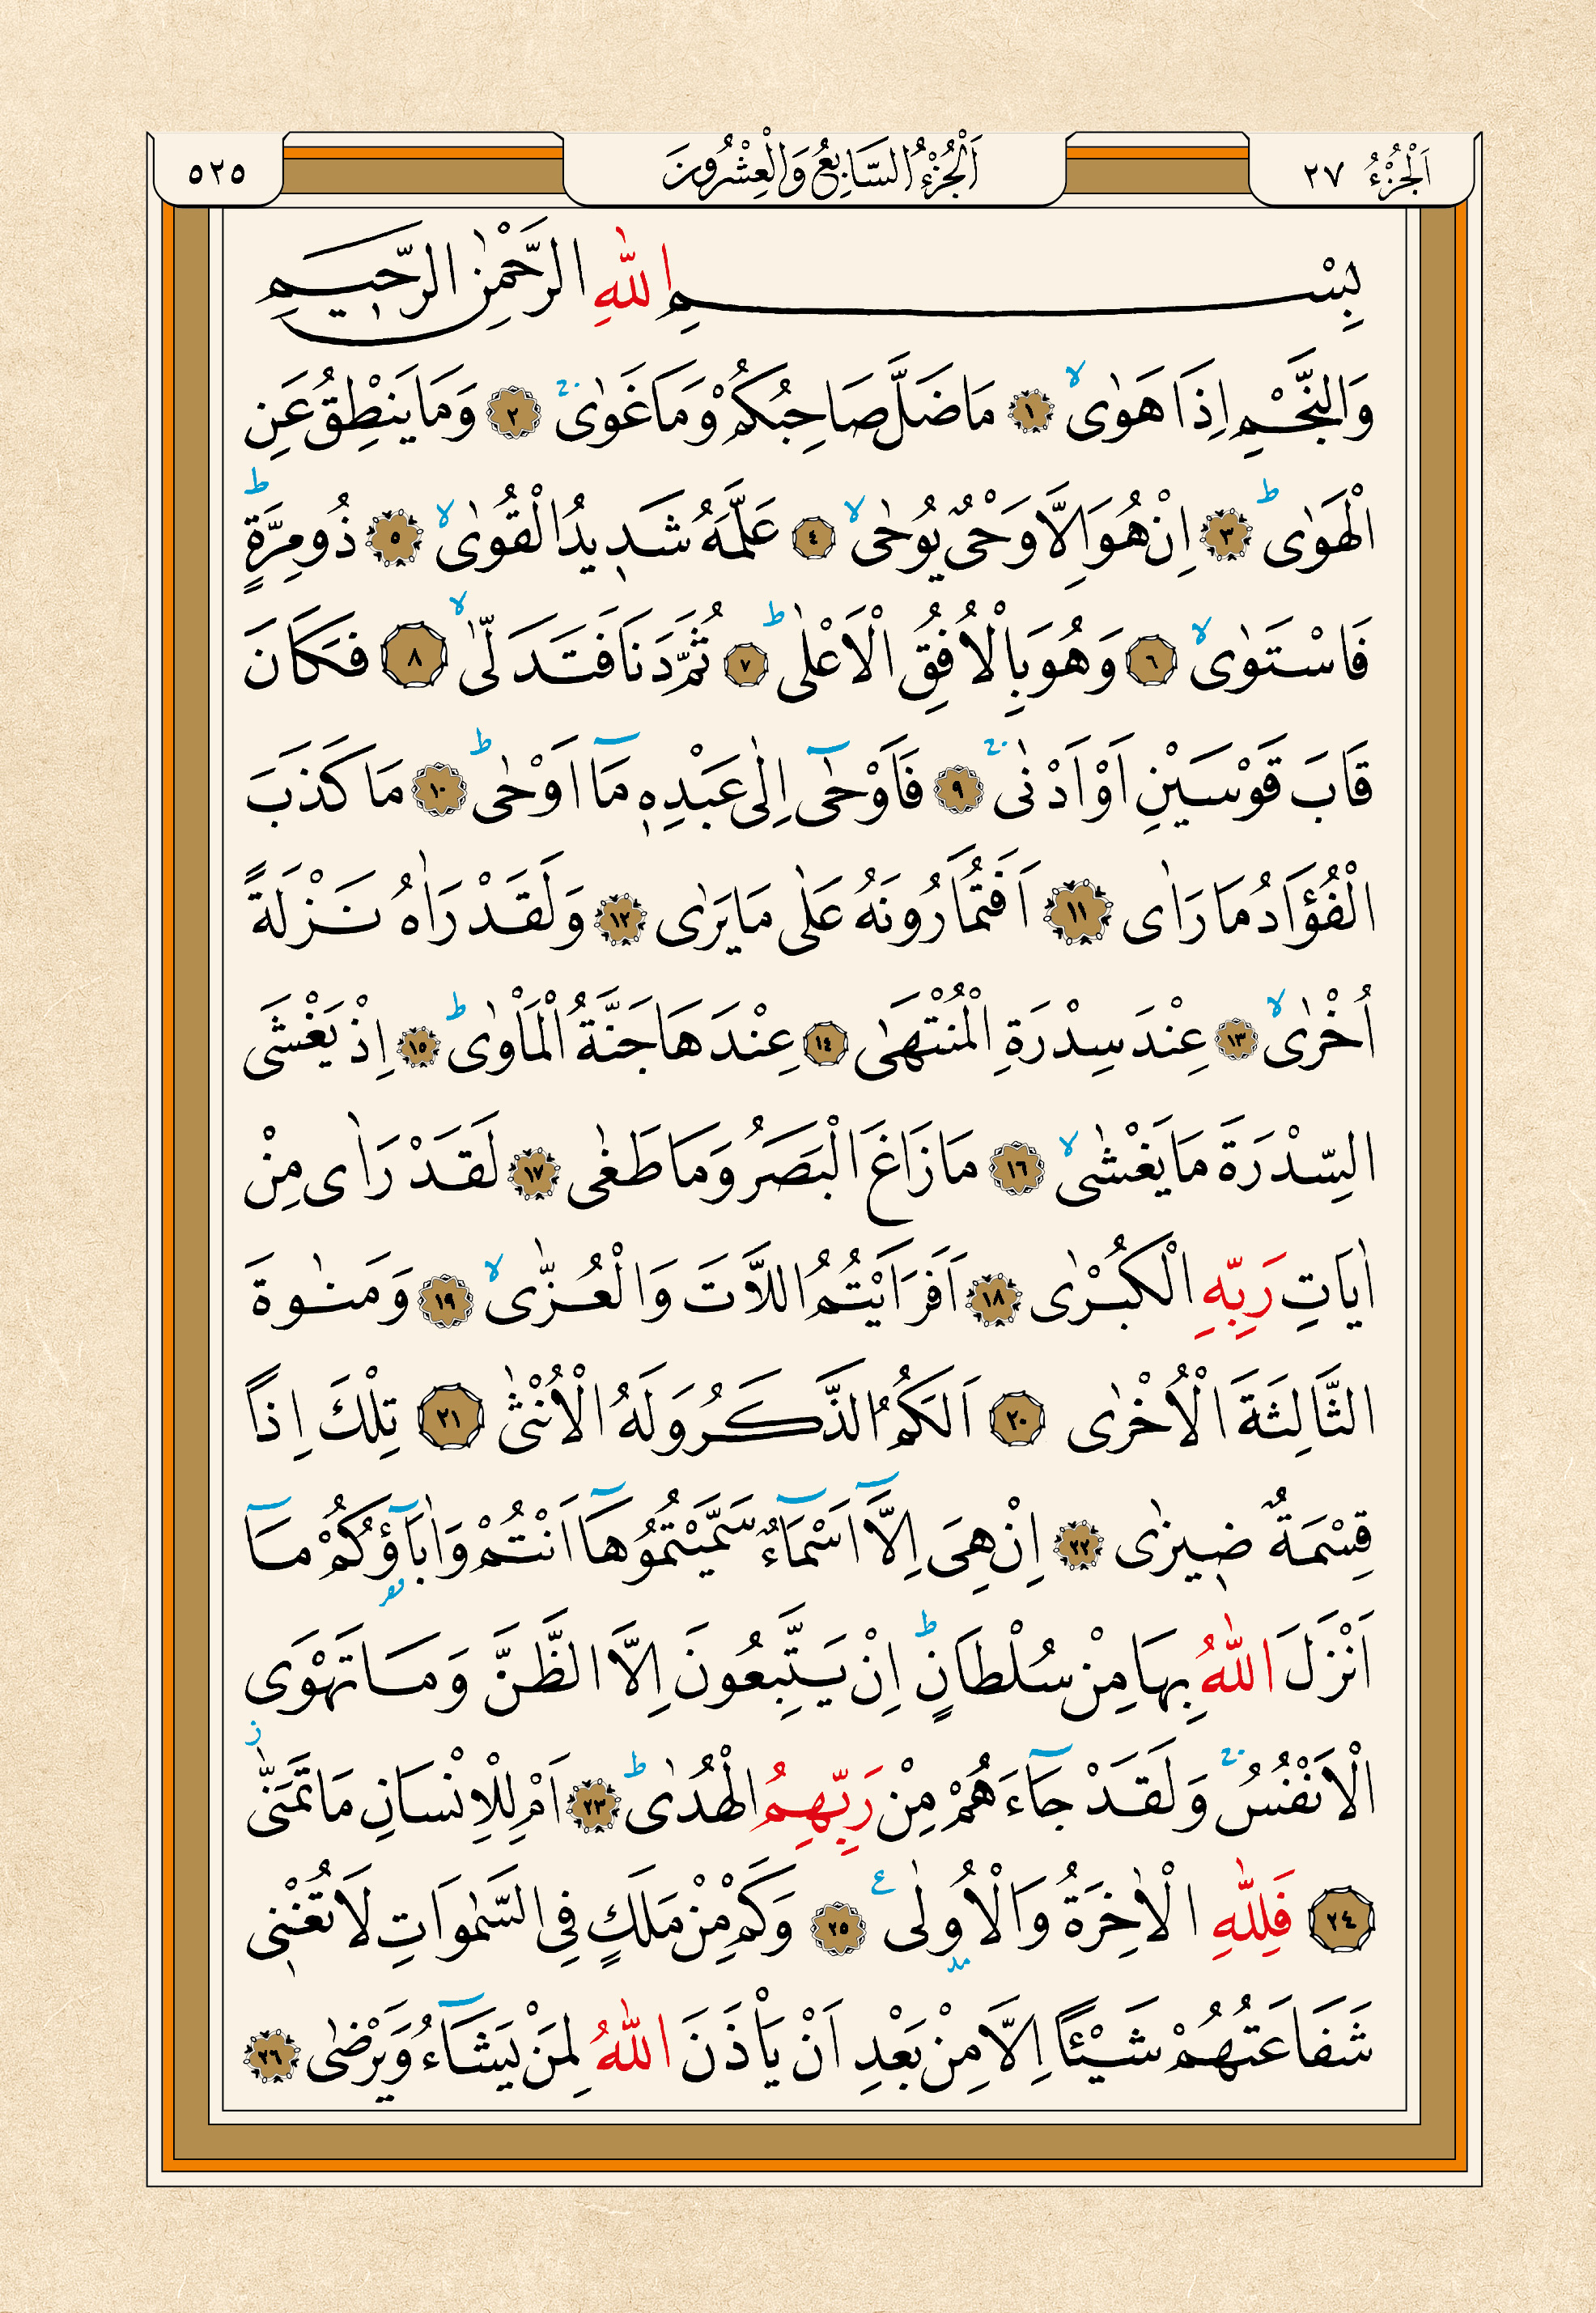 اَلْجُزْءُ ٢٧
اَلْجُزْءُ السَّابِعُ وَالْعِشْرُونَ
٥٢٥
بِسْمِ اللّٰهِ الرَّحْمٰنِ الرَّح۪يمِ
وَالنَّجْمِ اِذَا هَوٰىۙ ﴿١﴾ مَا ضَلَّ صَاحِبُكُمْ وَمَا غَوٰىۚ ﴿٢﴾ وَمَا يَنْطِقُ عَنِ
الْهَوٰىۜ ﴿٣﴾ اِنْ هُوَ اِلَّا وَحْيٌ يُوحٰىۙ ﴿٤﴾ عَلَّمَهُ شَد۪يدُ الْقُوٰىۙ ﴿٥﴾ ذُو مِرَّةٍۜ
فَاسْتَوٰىۙ ﴿٦﴾ وَهُوَ بِالْاُفُقِ الْاَعْلٰىۜ ﴿٧﴾ ثُمَّ دَنَا فَتَدَلّٰىۙ ﴿٨﴾ فَكَانَ
قَابَ قَوْسَيْنِ اَوْ اَدْنٰىۚ ﴿٩﴾ فَاَوْحٰٓى اِلٰى عَبْدِه۪ مَٓا اَوْحٰىۜ ﴿١٠﴾ مَا كَذَبَ
الْفُؤٰادُ مَا رَاٰى ﴿١١﴾ اَفَتُمَارُونَهُ عَلٰى مَا يَرٰى ﴿١٢﴾ وَلَقَدْ رَاٰهُ نَزْلَةً
اُخْرٰىۙ ﴿١٣﴾ عِنْدَ سِدْرَةِ الْمُنْتَهٰى ﴿١٤﴾ عِنْدَهَا جَنَّةُ الْمَأْوٰىۜ ﴿١٥﴾ اِذْ يَغْشَى
السِّدْرَةَ مَا يَغْشٰىۙ ﴿١٦﴾ مَا زَاغَ الْبَصَرُ وَمَا طَغٰى ﴿١٧﴾ لَقَدْ رَاٰى مِنْ
اٰيَاتِ رَبِّهِ الْكُبْرٰى ﴿١٨﴾ اَفَرَاَيْتُمُ اللَّاتَ وَالْعُزّٰىۙ ﴿١٩﴾ وَمَنٰوةَ
الثَّالِثَةَ الْاُخْرٰى ﴿٢٠﴾ اَلَكُمُ الذَّكَرُ وَلَهُ الْاُنْثٰى ﴿٢١﴾ تِلْكَ اِذاً
قِسْمَةٌ ض۪يزٰى ﴿٢٢﴾ اِنْ هِيَ اِلَّٓا اَسْمَٓاءٌ سَمَّيْتُمُوهَٓا اَنْتُمْ وَاٰبَٓاؤُ۬كُمْ مَٓا
اَنْزَلَ اللّٰهُ بِهَا مِنْ سُلْطَانٍۜ اِنْ يَتَّبِعُونَ اِلَّا الظَّنَّ وَمَا تَهْوَى
الْاَنْفُسُۚ وَلَقَدْ جَٓاءَهُمْ مِنْ رَبِّهِمُ الْهُدٰىۜ ﴿٢٣﴾ اَمْ لِلْاِنْسَانِ مَا تَمَنّٰىۘ
﴿٢٤﴾ فَلِلّٰهِ الْاٰخِرَةُ وَالْاُو۫لٰى۟ ﴿٢٥﴾ وَكَمْ مِنْ مَلَكٍ فِي السَّمٰوَاتِ لَا تُغْن۪ي
شَفَاعَتُهُمْ شَيْـٔاً اِلَّا مِنْ بَعْدِ اَنْ يَأْذَنَ اللّٰهُ لِمَنْ يَشَٓاءُ وَيَرْضٰى ﴿٢٦﴾